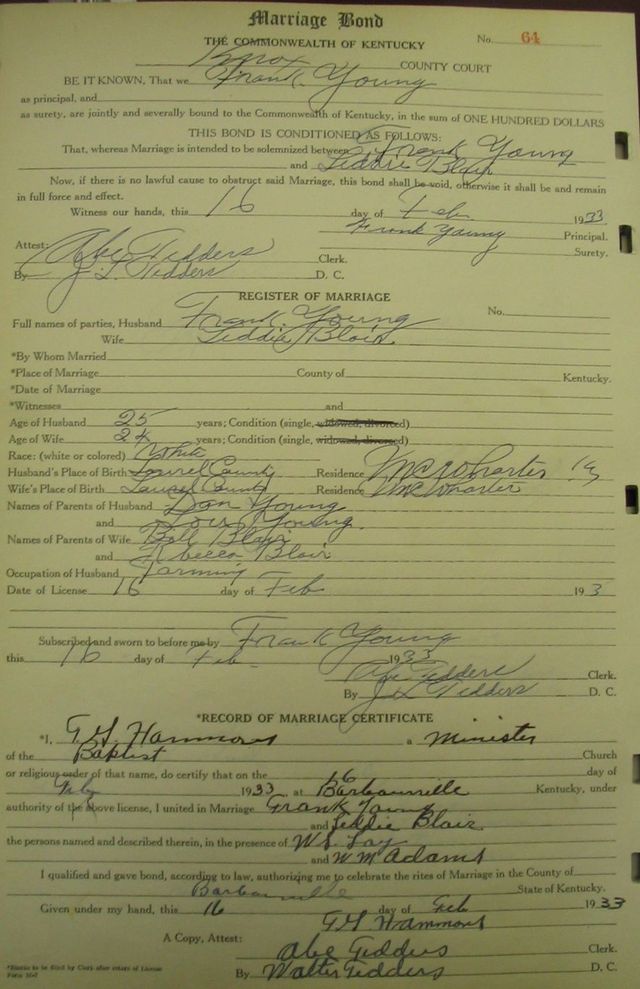 Marriage Bond
THE COMMONWEALTH OF KENTUCKY No. 64
Knox COUNTY COURT
BE IT KNOWN, That we Frank Young
as principal, and
as surety, are jointly and severally bound to the Commonwealth of Kentucky, in the sum of ONE HUNDRED DOLLARS
THIS BOND IS CONDITIONED AS FOLLOWS:
That, whereas Marriage is intended to be solemnized between Frank Young
and Leddie Blair
Now, if there is no lawful cause to obstruct said Marriage, this bond shall be void, otherwise it shall be and remain
in full force and effect.
Witness our hands, this 16 day of Feb 1933
Frank Young Principal.
Surety.
Attest: Abe Tedders Clerk.
By J L Tedders D. C.
REGISTER OF MARRIAGE
Full names of parties, Husband Frank Young No.
Wife Leddie Blair
*By Whom Married
*Place of Marriage County of Kentucky.
*Date of Marriage
*Witnesses and
Age of Husband 25 years; Condition (single, widowed, divorced)
Age of Wife 24 years; Condition (single, widowed, divorced)
Race: (white or colored) White
Husband's Place of Birth Laurel County Residence McWharter Ky
Wife's Place of Birth Laurel County Residence McWharter
Names of Parents of Husband Dan Young
and Young
Names of Parents of Wife Blair
and Rbecca Blair
Occupation of Husband Farming
Date of License 16 day of Feb 193 3
Subscribed and sworn to before me by Frank Young
this 16 day of Feb 1933
Abe Tedders Clerk.
By J L Tedders D. C.
*RECORD OF MARRIAGE CERTIFICATE
*I, T. G. Hammons a Minister
of the Baptist Church
or religious order of that name, do certify that on the 16 day of
Feb 1933, at Barbourville Kentucky, under
authority of the above license, I united in Marriage Frank Young
and Leddie Blair
the persons named and described therein, in the presence of W.S. Lay
and W M Adams
I qualified and gave bond, according to law, authorizing me to celebrate the rites of Marriage in the County of
Barbourville State of Kentucky.
Given under my hand, this 16 day of Feb 1933
T G Hammons
A Copy, Attest: Abe Tedders Clerk.
By Walter Tedders D. C.
*Blanks to be filled by Clerk after return of License